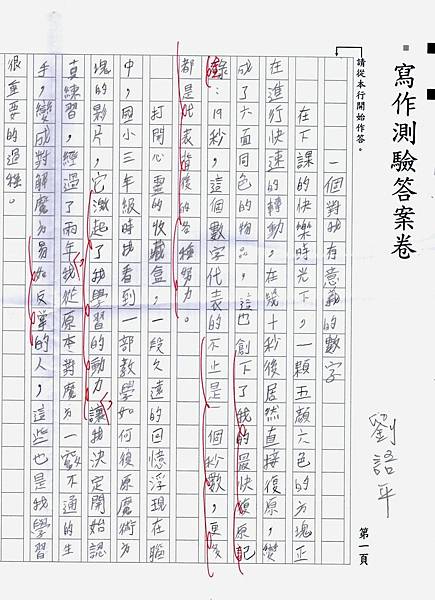 寫作測驗答案卷
劉語平
第一頁
請從本行開始作答。
一個對我有意義的數字
在下課的快樂時光下，一顆五顏六色的方塊正
在進行快速的轉動，在幾十秒後居然直接復原，變
成了六面同色的物品，這也創下了我的最快復原記
錄：19秒，這個數字代表的不止是一個秒數，更多
都是代表背後的各種努力。
打開心靈的收藏盒，一段久遠的回憶浮現在腦
中，國小三年級時我看到一部教學如何復原魔術方
塊的影片，它激起了我學習的動力讓我決定開始認
真練習，經過了兩年我從原本對魔方一竅不通的生
手，變成對解魔方易如反掌的人，這些也是我學習
很重要的過程。